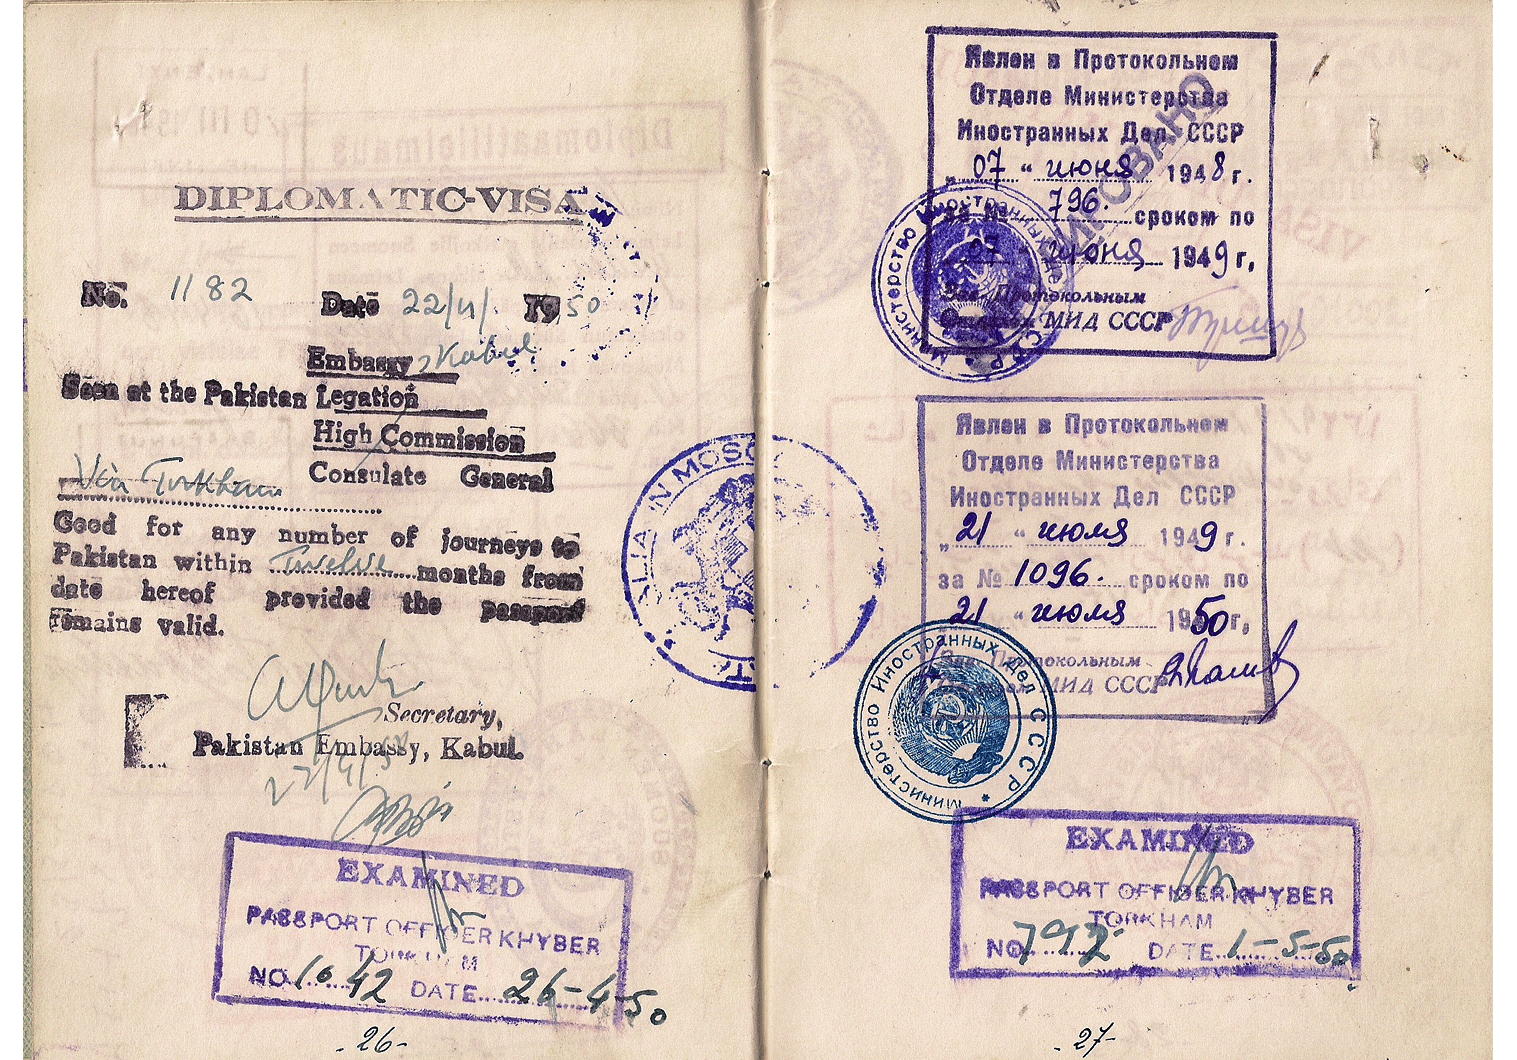 DIPLOMATIC-VISA
No. 1182 Date 22/4/ 1950
Embassy, Kabul
Seen at the Pakistan Legation
High Commission
Consulate General
Via Torkham
Good for any number of journeys to
Pakistan within Twelve months from
date hereof provided the passport
remains valid.
Secretary,
Pakistan Embassy, Kabul.
22/4/50
EXAMINED
PASSPORT OFFICER KHYBER
TORKHAM
NO. 1042 DATE 26-4-50
-26-
IN MOSCO
Явлен в Протокольном
Отделе Министерства
Иностранных Дел СССР
„07" июня 1948 г.
за № 796 сроком по
07 июня 1949 г,
Зав. Протокольным
Отделом МИД СССР
Министерство Иностранных Дел СССР
Явлен в Протокольном
Отделе Министерства
Иностранных Дел СССР
„21" июля 1949 г.
за № 1096. сроком по
21 " июля 1950 г,
Зав. Протокольным
Отделом МИД СССР
Министерство Иностранных Дел СССР
EXAMINED
PASSPORT OFFICER KHYBER
TORKHAM
NO. 792 DATE 1-5-50
-27-